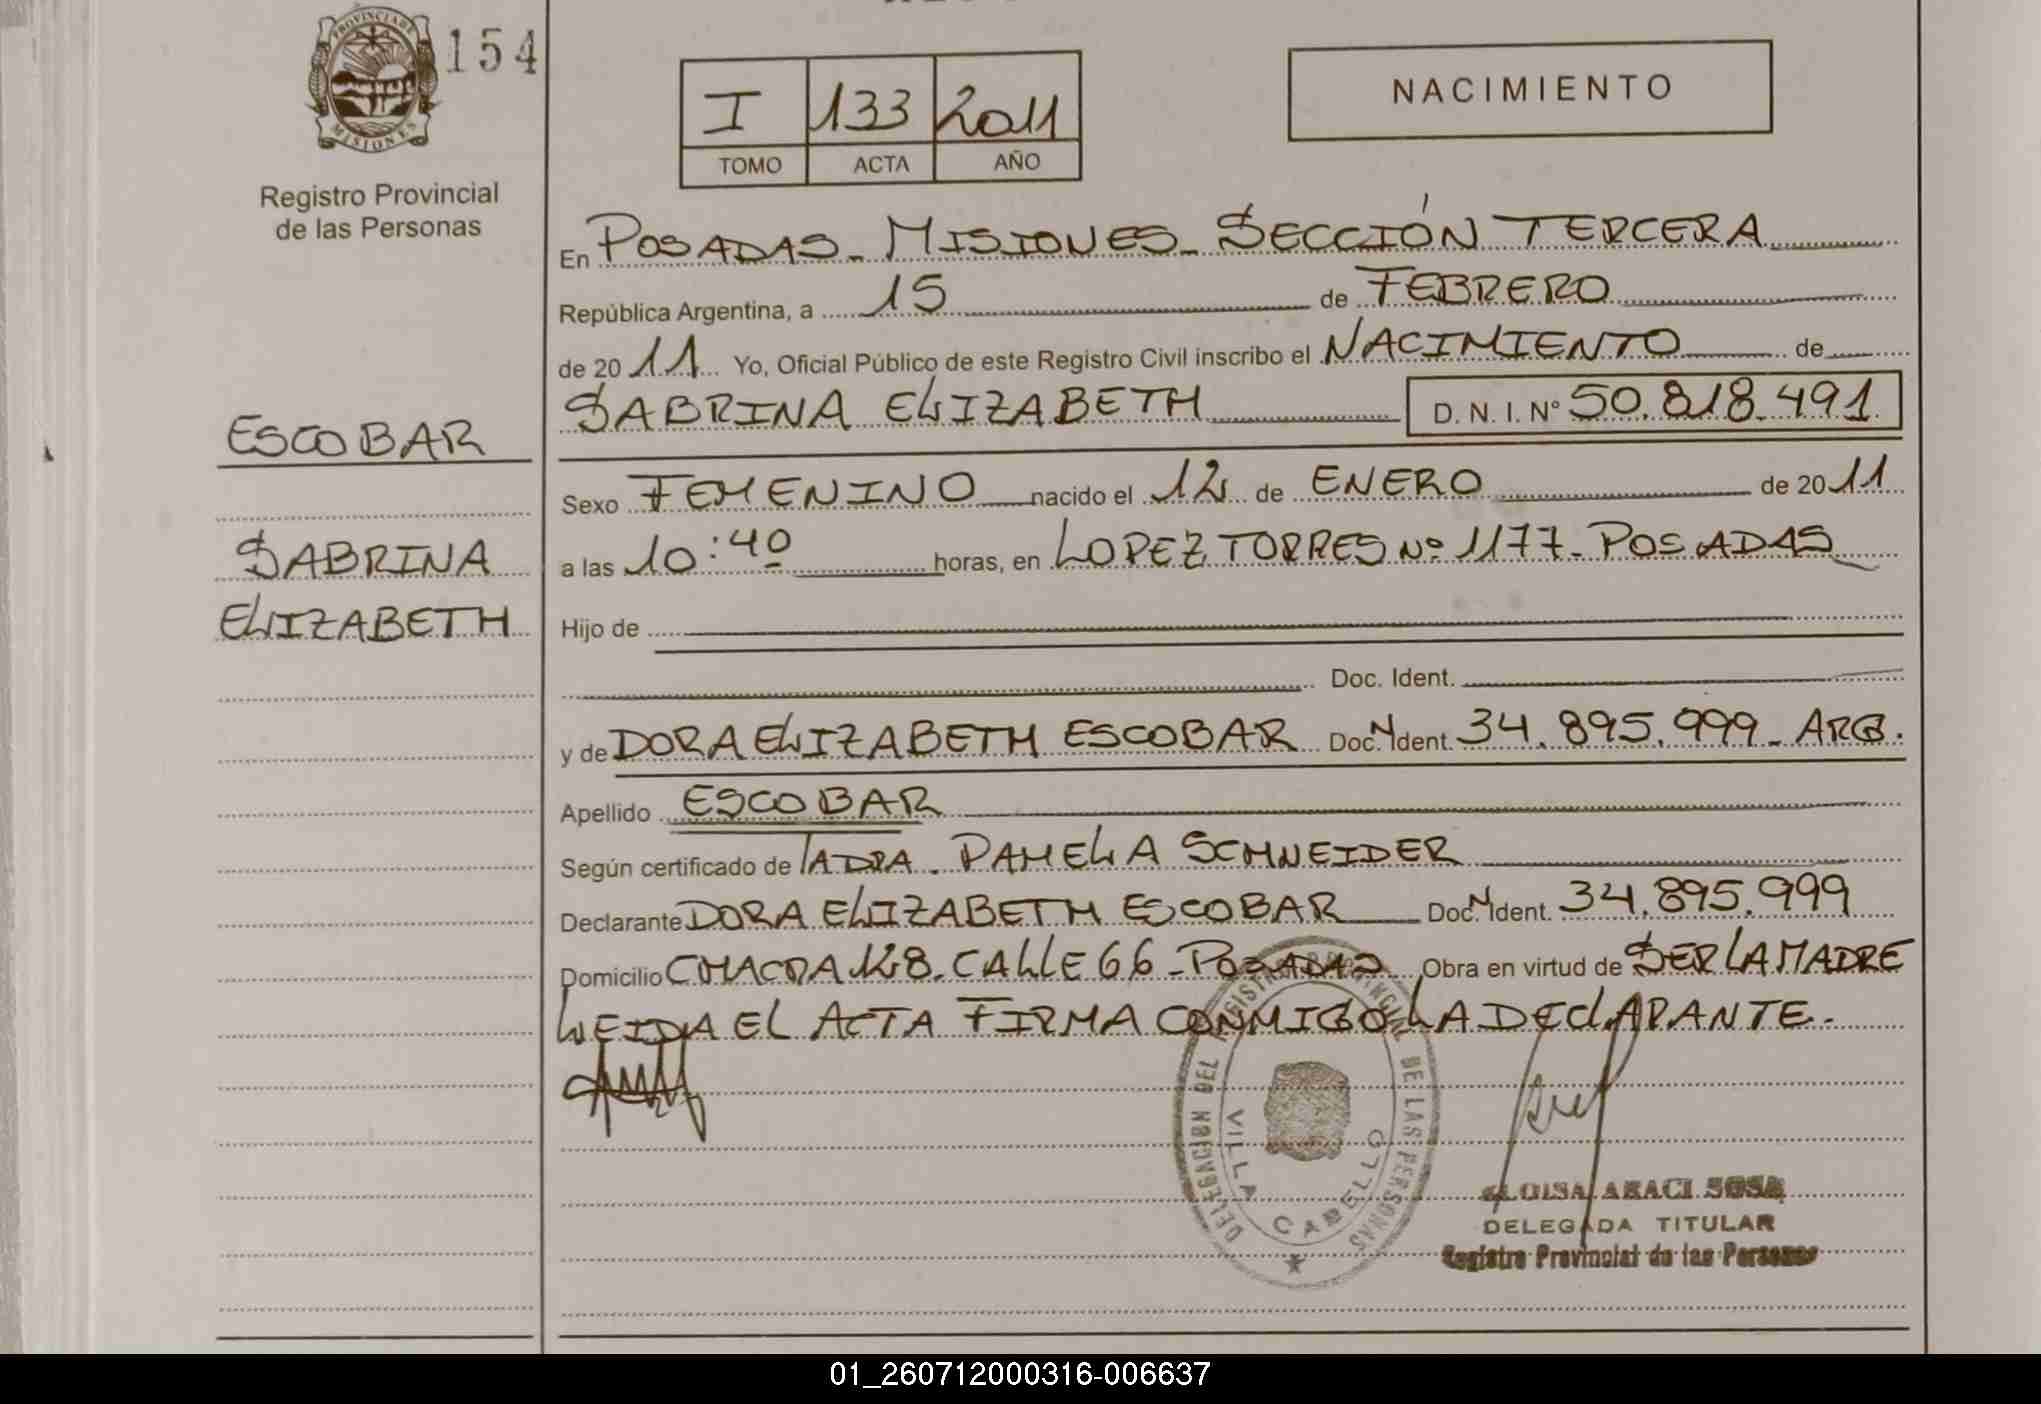 PROVINCIA DE
MISIONES
154
Registro Provincial
de las Personas
I 133 2011
TOMO ACTA AÑO
NACIMIENTO
En POSADAS - MISIONES - SECCIÓN TERCERA
República Argentina, a 15 de FEBRERO
de 20 11 Yo, Oficial Público de este Registro Civil inscribo el NACIMIENTO de
SABRINA ELIZABETH D. N. I. N° 50.818.491
ESCOBAR
SABRINA
ELIZABETH
Sexo FEMENINO nacido el 12 de ENERO de 20 11
a las 10:40 horas, en LOPEZ TORRES Nº 1177 - POSADAS
Hijo de
Doc. Ident.
y de DORA ELIZABETH ESCOBAR Doc. N Ident. 34.895.999 - ARG.
Apellido ESCOBAR
Según certificado de PAMELA SCHNEIDER
Declarante DORA ELIZABETH ESCOBAR Doc. N Ident. 34.895.999
Domicilio CHACRA 128. CALLE 66 - POSADAS Obra en virtud de SER LA MADRE
LEIDA EL ACTA FIRMA CONMIGO LA DECLARANTE.
DELEGACION DEL REGISTRO PROVINCIAL DE LAS PERSONAS
VILLA CABELLO
ELOISA ARACI SOSA
DELEGADA TITULAR
Registro Provincial de las Personas
01_260712000316-006637